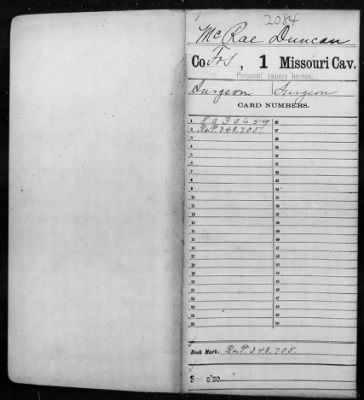 2084
McRae Duncan
Co F&S, 1 Missouri Cav.
Personal papers herein.
Surgeon Surgeon
CARD NUMBERS.
1 8030659 26
2 R&P. 248,705 27
Book Mark: R&P. 248,705.
See also